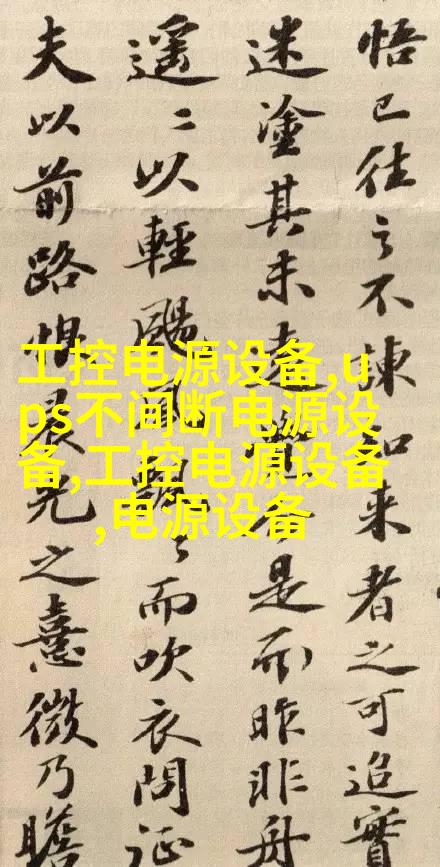 悟已往之不諫知来者之可追實
迷塗其未遠覺今是而昨非舟
遥〻以輕颺風飄〻而吹衣問征
夫以前路恨晨光之熹微乃瞻
工控电源设备,u
ps不间断电源设
备,工控电源设备
,电源设备